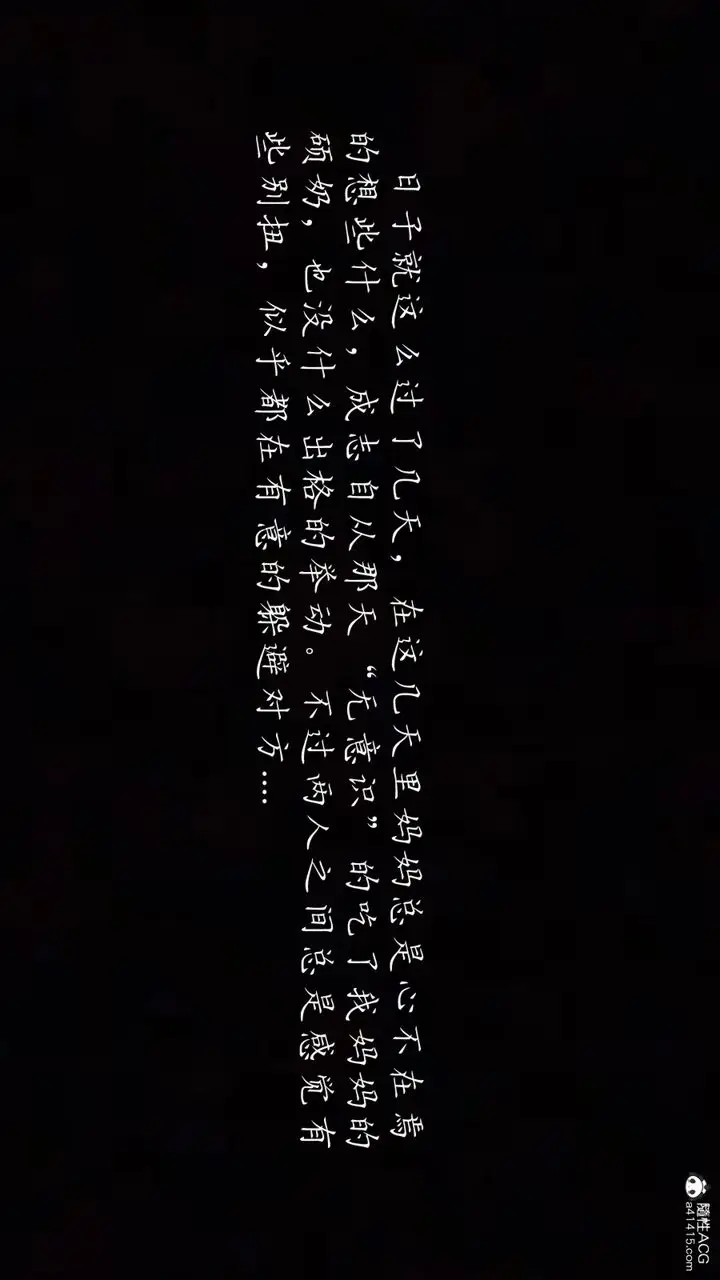 日子就这么过了几天，在这几天里妈妈总是心不在焉
的想些什么，成志自从那天“无意识”的吃了我妈妈的
硕奶，也没什么出格的举动。不过两人之间总是感觉有
些别扭，似乎都在有意的躲避对方....
隨性ACG
a41415.com